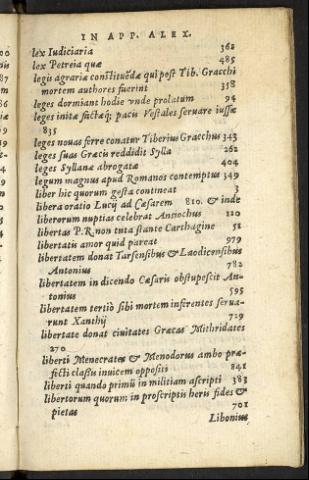 IN APP. ALEX.
lex Iudiciaria 362
lex Petreia quæ 485
legis agrariæ constituēdæ qui post Tib. Gracchi
mortem authores fuerint 358
leges dormiant hodie vnde prolatum 94
leges initæ factæq; pacis Vestales seruare iussæ
835
leges nouas ferre conatur Tiberius Gracchus 343
leges suas Græcis reddidit Sylla 262
leges Syllanæ abrogatæ 404
legum magnus apud Romanos contemptus 349
liber hic quorum gesta contineat 3
libera oratio Lucij ad Cæsarem 810. & inde
liberorum nuptias celebrat Antiochus 110
libertas P.R. non tuta stante Carthagine 51
libertatis amor quid pareat 979
libertatem donat Tarsensibus & Laodicensibus
Antonius 782
libertatem in dicendo Cæsaris obstupescit An-
tonius 595
libertatem tertiò sibi mortem inferentes serua-
runt Xanthij 729
libertate donat ciuitates Græcas Mithridates
270
liberti Menecrates & Menodorus ambo præ-
fecti classiū inuicem oppositi 841
liberti quando primū in militiam ascripti 383
libertorum quorum in proscriptis heris fides &
pietas 701
Libonius